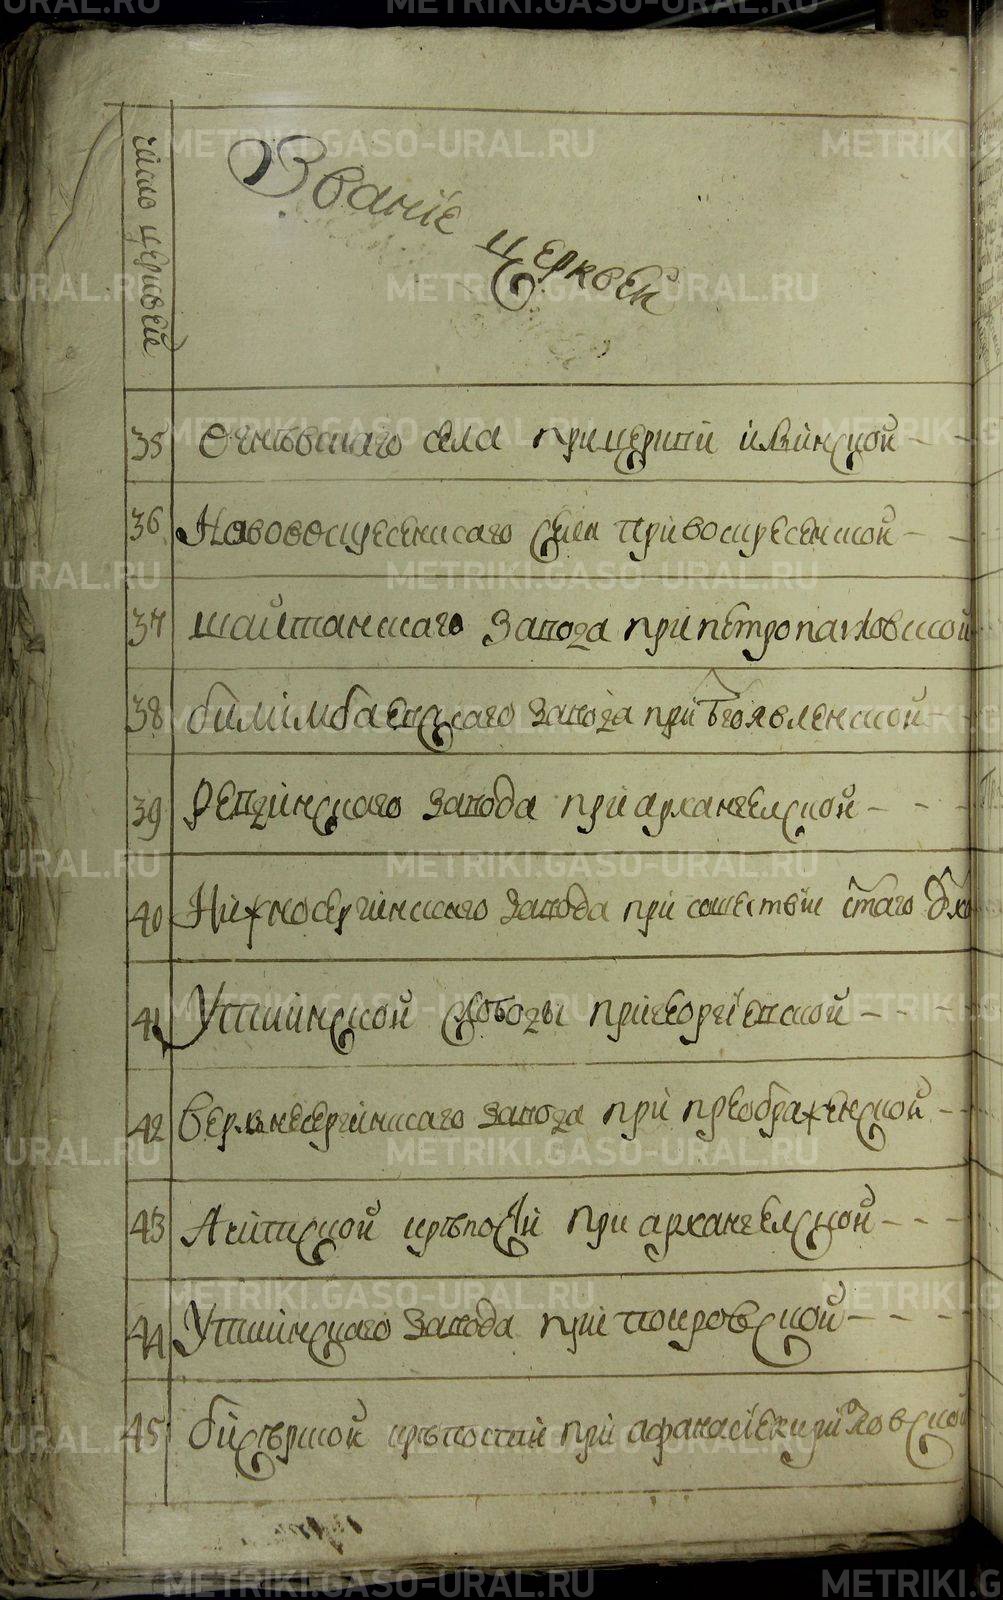 число церквей
Званїе
церквей
35 Огнѣвскаго села при церкви илїинской
36 Нововоскресенскаго села при воскресенской
37 шайтанскаго завода при петропавловской
38 билимбаевскаго завода при бгоявленской
39 Ревдинскаго завода при архангелской
40 Нижносергинскаго завода при сошествїи стаго дха
41 Уткинской слободы при георгїевской
42 верхнесергинскаго завода при преображенской
43 Ачитской крѣпости при архангелской
44 Уткинскаго завода при покровской
45 бисерской крѣпости при афанасїекириловской
METRIKI.GASO-URAL.RU